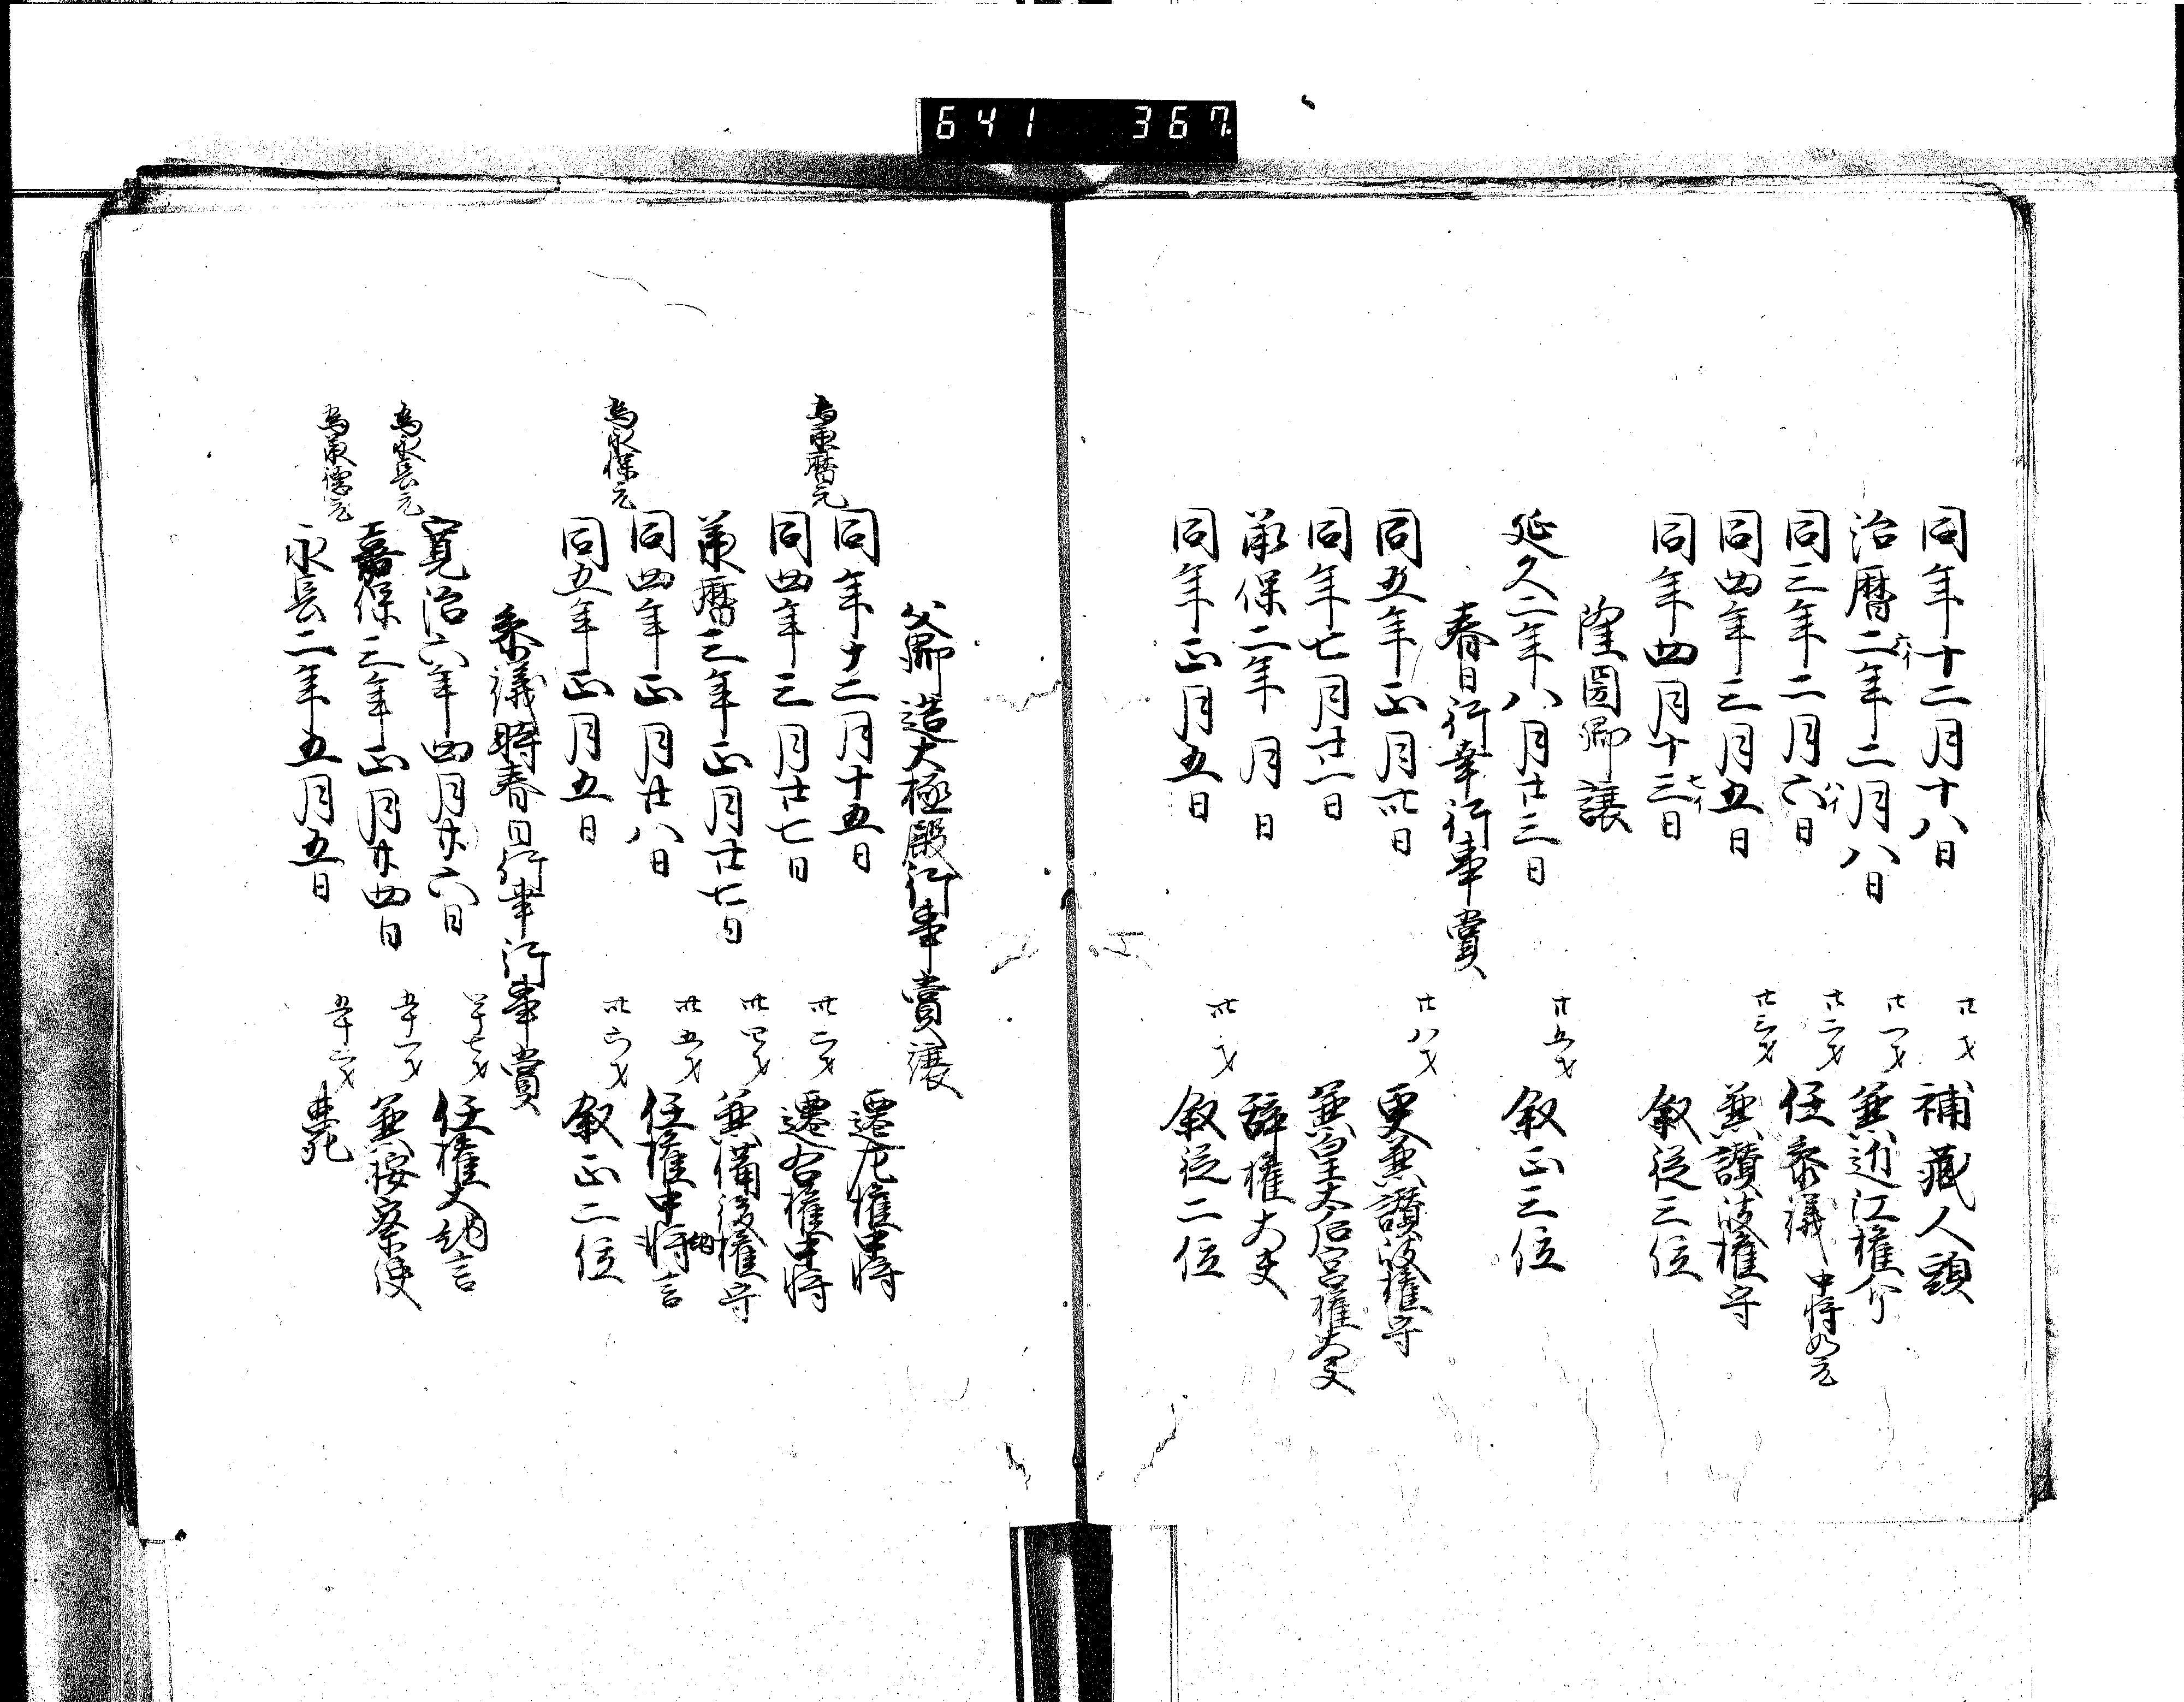 641 367
同年十二月十八日 廿才 補蔵人頭
治暦二年二月八日 廿一才 兼近江権介
同三年二月六日 廿二才 任参議 中将如元
同四年三月五日 廿三才 兼讃岐権守
同年四月十三日 叙従三位
隆国卿譲
延久二年八月廿三日 廿五才 叙正三位
春日行幸行事賞
同五年正月卅日 廿八才 更兼讃岐権守
同年七月廿一日 兼皇太后宮権大夫
承保二年 月 日 辞権大夫
同年正月五日 卅才 叙従二位
父卿造大極殿行事賞譲
同年十二月十五日 遷左権中将
為承暦元
同四年三月廿七日 卅二才 遷右権中将
承暦三年正月廿七日 卅四才 兼備後権守
同四年正月廿八日 卅五才 任権中将納言
為永保元
同五年正月五日 卅六才 叙正二位
参議時春日行幸行事賞
寛治六年四月廿六日 四十七才 任権大納言
為永長元
嘉保三年正月廿四日 五十一才 兼按察使
為承徳元
永長二年五月五日 五十二才 薨